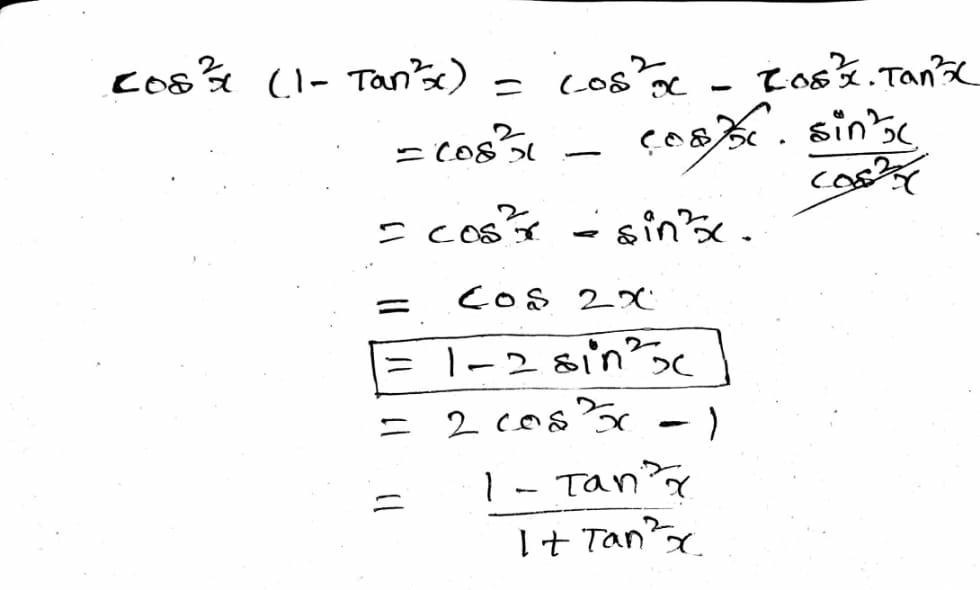 cos²x (1- Tan²x) = cos²x - cos²x. Tan²x
= cos²x - cos²x . sin²x/cos²x
= cos²x - sin²x.
= cos 2x
= 1-2 sin²x
= 2 cos²x - 1
= 1 - Tan²x/1+ Tan²x